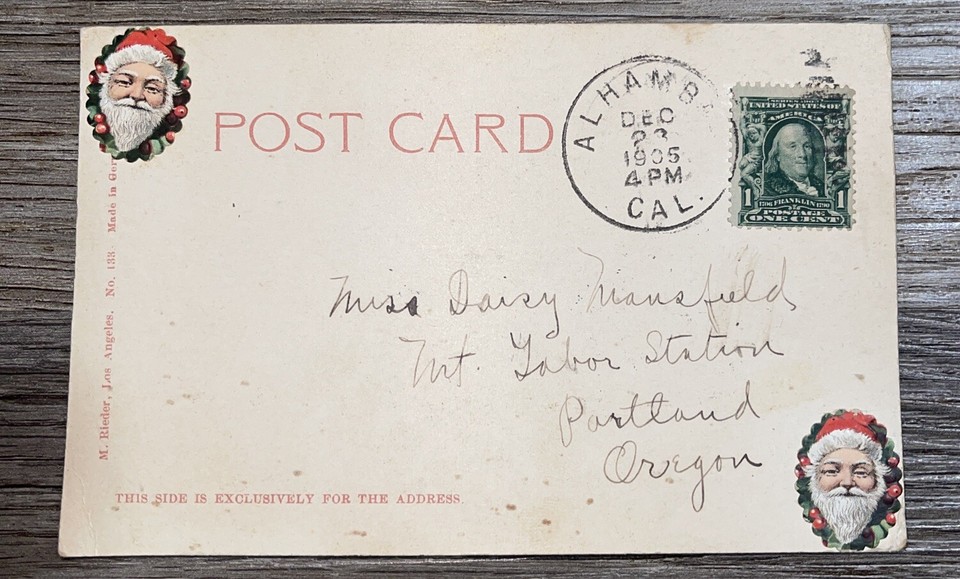 POST CARD
ALHAMB
DEC
23
1905
4 PM
CAL.
UNITED STATES OF
AMERICA
1 1
FRANKLIN
POSTAGE
ONE CENT
Miss Daisy Mansfield
Mt. Tabor Station
Portland
Oregon
M. Rieder, Los Angeles. No. 133 Made in Ger
THIS SIDE IS EXCLUSIVELY FOR THE ADDRESS.